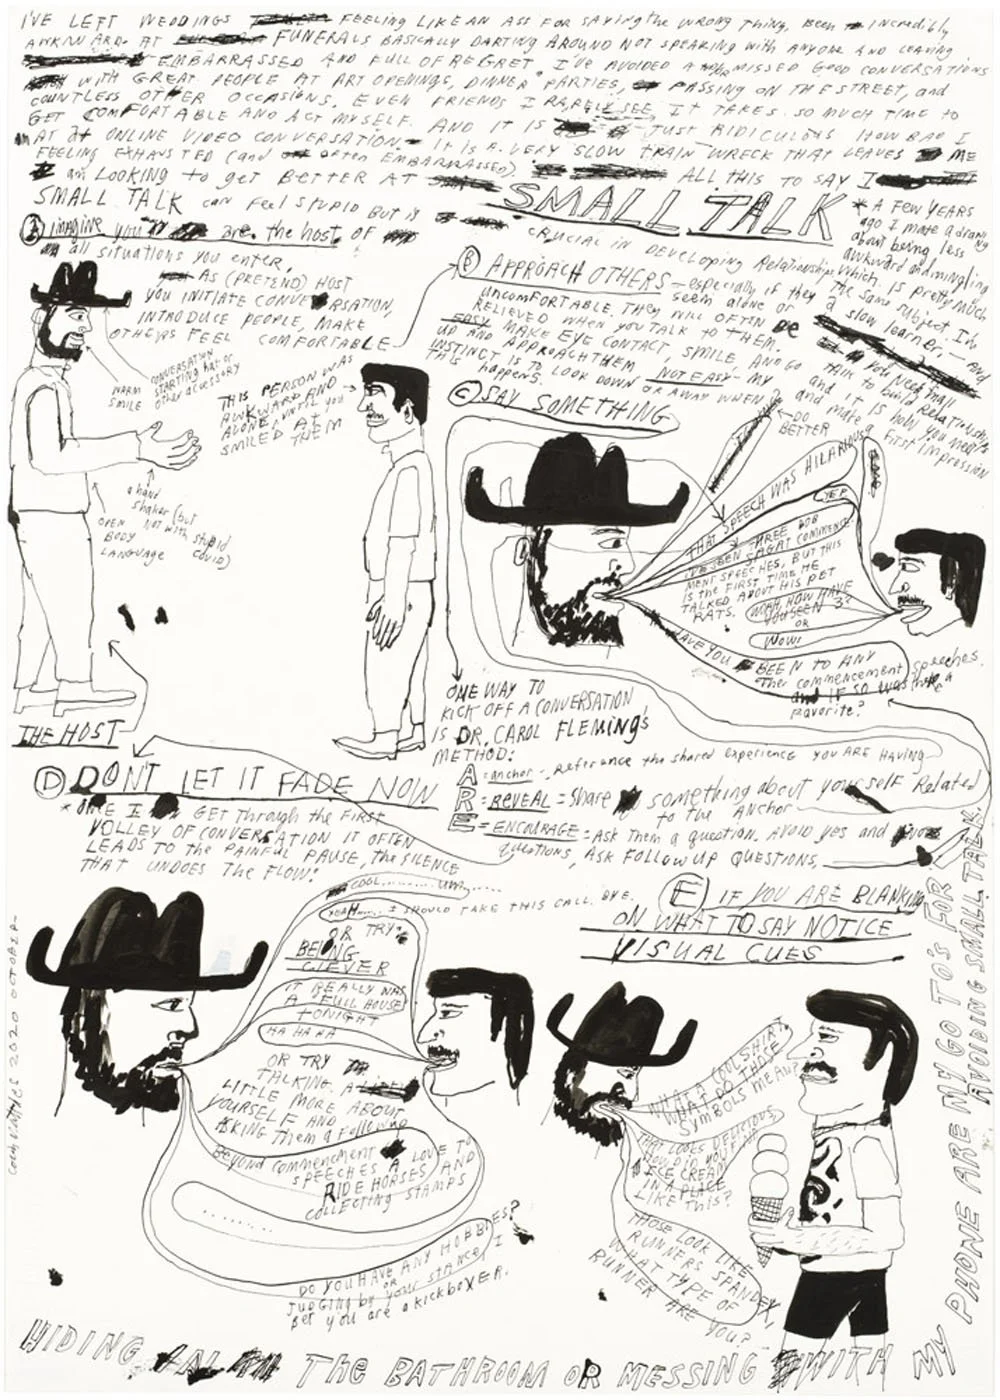 I'VE LEFT WEDDINGS FEELING LIKE AN ASS FOR SAYING the WRONG THING, BEEN INCREDIBLY
AWKWARD AT FUNERALS BASICALLY DARTING AROUND NOT SPEAKING WITH ANYONE AND LEAVING
EMBARRASSED AND FULL OF REGRET. I'VE AVOIDED AND MISSED GOOD CONVERSATIONS
WITH GREAT PEOPLE AT ART OPENINGS, DINNER PARTIES, PASSING ON THE STREET, and
COUNTLESS OTHER OCCASIONS. EVEN FRIENDS I RARELY SEE, IT TAKES SO MUCH TIME to
GET COMFORTABLE AND ACT MYSELF. AND IT IS JUST RIDICULOUS HOW BAD I
am AT ONLINE VIDEO CONVERSATION. It IS A VERY SLOW TRAIN WRECK THAT LEAVES ME
FEELING EXHAUSTED (and often EMBARRASSED). ALL THIS TO SAY I
am LOOKING to get BETTER AT SMALL TALK
SMALL TALK can Feel STUPID BUT IS CRUCIAL IN DEVELOPING Relationships
* A FEW YEARS
ago I made a drawing
about being less
awkward and mingling
which is pretty much
the same subject. I'm
a slow learner. - And
you need small
TALK to build Relationships
and it is how you
and make a first impression
Ⓐ imagine you are the host of
all situations you enter.
AS (PRETEND) HOST
YOU INITIATE CONVERSATION,
INTRODUCE PEOPLE, MAKE
OTHERS FEEL COMFORTABLE
WARM
SMILE
CONVERSATION
STARTING HAT or
other accessory
a hand
shaker (but
NOT with stupid
COVID)
OPEN
BODY
LANGUAGE
THE HOST
THIS PERSON WAS
AWKWARD AND
ALONE, UNTIL YOU
SMILED AT
THEM
Ⓑ APPROACH OTHERS - especially if they
seem alone or
UNCOMFORTABLE. THEY WILL OFTEN be
RELIEVED WHEN YOU TALK to THEM.
EASY MAKE EYE CONTACT, SMILE AND GO
UP AND APPROACH THEM NOT EASY - MY
INSTINCT IS TO LOOK DOWN OR AWAY WHEN
THIS happens.
DO
BETTER
Ⓒ SAY SOMETHING
THAT SPEECH WAS HILARIOUS
YEP
I'VE SEEN THREE BOB
SAGAT COMMENCE-
MENT SPEECHES, BUT THIS
IS the FIRST TIME HE
TALKED ABOUT HIS PET
RATS.
WOAH HOW HAVE
YOU SEEN 3?
OR
WOW!
HAVE YOU BEEN TO ANY
other commencement speeches.
and IF SO was there a
favorite?
ONE WAY TO
KICK OFF A CONVERSATION
IS DR. CAROL FLEMING'S
METHOD:
A = anchor - Reference the shared experience YOU ARE HAVING
R = REVEAL = Share something about yourself Related
to the ANCHOR
E = ENCOURAGE = Ask them a question. AVOID yes and no
questions, ASK FOLLOW UP QUESTIONS
Ⓓ DON'T LET IT FADE NOW
* ONCE I GET through the FIRST
VOLLEY OF CONVERSATION IT OFTEN
LEADS TO the PAINFUL PAUSE, the SILENCE
THAT UNDOES THE FLOW:
COOL......... Um,......
YEAH..... I SHOULD TAKE THIS CALL. BYE.
OR TRY
BEING
CLEVER
IT REALLY WAS
A FULL HOUSE
TONIGHT
HA HA HA
OR TRY
TALKING A
LITTLE MORE ABOUT
YOURSELF AND
ASKING them a Follow up
Beyond commencement
SPEECHES I LOVE TO
RIDE HORSES AND
COLLECTING STAMPS
........
DO YOU HAVE ANY HOBBIES?
OR
JUDGING by your stance, I
bet you are a kickboxer.
Ⓔ IF YOU ARE BLANKING
ON WHAT TO SAY NOTICE
VISUAL CUES
WHAT A COOL SHIRT,
WHAT DO THOSE
Symbols MEAN?
THAT LOOKS DELICIOUS,
ICE CREAM
IN A PLACE
LIKE THIS?
THOSE LOOK LIKE
RUNNERS SPANDEX,
WHAT TYPE OF
RUNNER ARE YOU?
2020 OCTOBER-
HIDING IN THE BATHROOM OR MESSING WITH MY
PHONE ARE MY GO TO'S FOR
AVOIDING SMALL TALK.